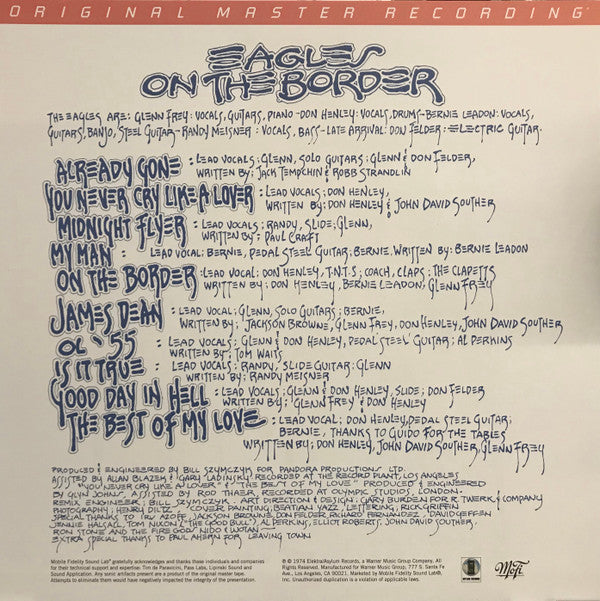 ORIGINAL MASTER RECORDING
EAGLES
ON THE BORDER
THE EAGLES ARE: GLENN FREY: VOCALS, GUITARS, PIANO-DON HENLEY: VOCALS, DRUMS-BERNIE LEADON: VOCALS,
GUITARS, BANJO, STEEL GUITAR-RANDY MEISNER: VOCALS, BASS-LATE ARRIVAL: DON FELDER: ELECTRIC GUITAR
ALREADY GONE : LEAD VOCALS: GLENN, SOLO GUITARS: GLENN & DON FELDER,
WRITTEN BY: JACK TEMPCHIN & ROBB STRANDLIN
YOU NEVER CRY LIKE A LOVER : LEAD VOCALS: DON HENLEY,
WRITTEN BY: DON HENLEY & JOHN DAVID SOUTHER
MIDNIGHT FLYER : LEAD VOCALS: RANDY, SLIDE; GLENN,
WRITTEN BY: PAUL CRAFT
MY MAN : LEAD VOCAL: BERNIE, PEDAL STEEL GUITAR; BERNIE, WRITTEN BY: BERNIE LEADON
ON THE BORDER : LEAD VOCAL: DON HENLEY, T.N.T.S; COACH, CLAPS: THE CLAPETTS
WRITTEN BY: DON HENLEY, BERNIE LEADON, GLENN FREY
JAMES DEAN : LEAD VOCAL; GLENN, SOLO GUITARS; BERNIE,
WRITTEN BY: JACKSON BROWNE, GLENN FREY, DON HENLEY, JOHN DAVID SOUTHER
OL' '55 : LEAD VOCALS: GLENN & DON HENLEY, PEDAL STEEL GUITAR; AL PERKINS
WRITTEN BY: TOM WAITS
IS IT TRUE : LEAD VOCALS: RANDY, SLIDE GUITAR: GLENN
WRITTEN BY: RANDY MEISNER
GOOD DAY IN HELL : LEAD VOCALS: GLENN & DON HENLEY, SLIDE; DON FELDER
WRITTEN BY: GLENN FREY & DON HENLEY
THE BEST OF MY LOVE : LEAD VOCAL: DON HENLEY, PEDAL STEEL GUITAR;
BERNIE, THANKS TO GUIDO FOR THE TABLES
WRITTEN BY: DON HENLEY, JOHN DAVID SOUTHER, GLENN FREY
PRODUCED & ENGINEERED BY BILL SZYMCZYK FOR PANDORA PRODUCTIONS LTD.
ASSISTED BY ALLAN BLAZEK & GARY LADINSKY RECORDED AT THE RECORD PLANT, LOS ANGELES
"YOU NEVER CRY LIKE A LOVER" & "THE BEST OF MY LOVE" PRODUCED & ENGINEERED
BY GLYN JOHNS, ASSISTED BY ROD THAER RECORDED AT OLYMPIC STUDIOS, LONDON.
REMIX ENGINEER: BILL SZYMCZYK. ART DIRECTION & DESIGN: GARY BURDEN FOR R. TWERK & COMPANY
PHOTOGRAPHY: HENRY DILTZ. COVER PAINTING, BEATIAN YAZZ, LETTERING, RICK GRIFFIN
SPECIAL THANKS TO IRV AZOFF, JACKSON BROWNE, DON FELDER, RICHARD FERNANDEZ, DAVID GEFFEN
JENNIE HALSALL, TOM NIXON ("THE GOOD BULL"), AL PERKINS, ELLIOT ROBERTS, JOHN DAVID SOUTHER.
RON STONE AND THE FIRE GOD NIDO & WOMAN
EXTRA SPECIAL THANKS TO PAUL AHERN FOR LEAVING TOWN
Mobile Fidelity Sound Lab® gratefully acknowledges and thanks these individuals and companies
for their technical support: Tim de Paravicini, Pass Labs, Lipinski Sound and
Sound Application. Any sonic artifacts present are a product of the original master tape.
Attempts to eliminate them would have negatively impacted the integrity of the presentation.
℗ © 1974 Elektra/Asylum Records, a Warner Music Group Company. All Rights
Reserved. Manufactured for Warner Music Group, 777 S. Santa Fe
Ave., Los Angeles, CA 90021. Marketed by Mobile Fidelity Sound Lab®,
Inc. Unauthorized duplication is a violation of applicable laws.
MoFi